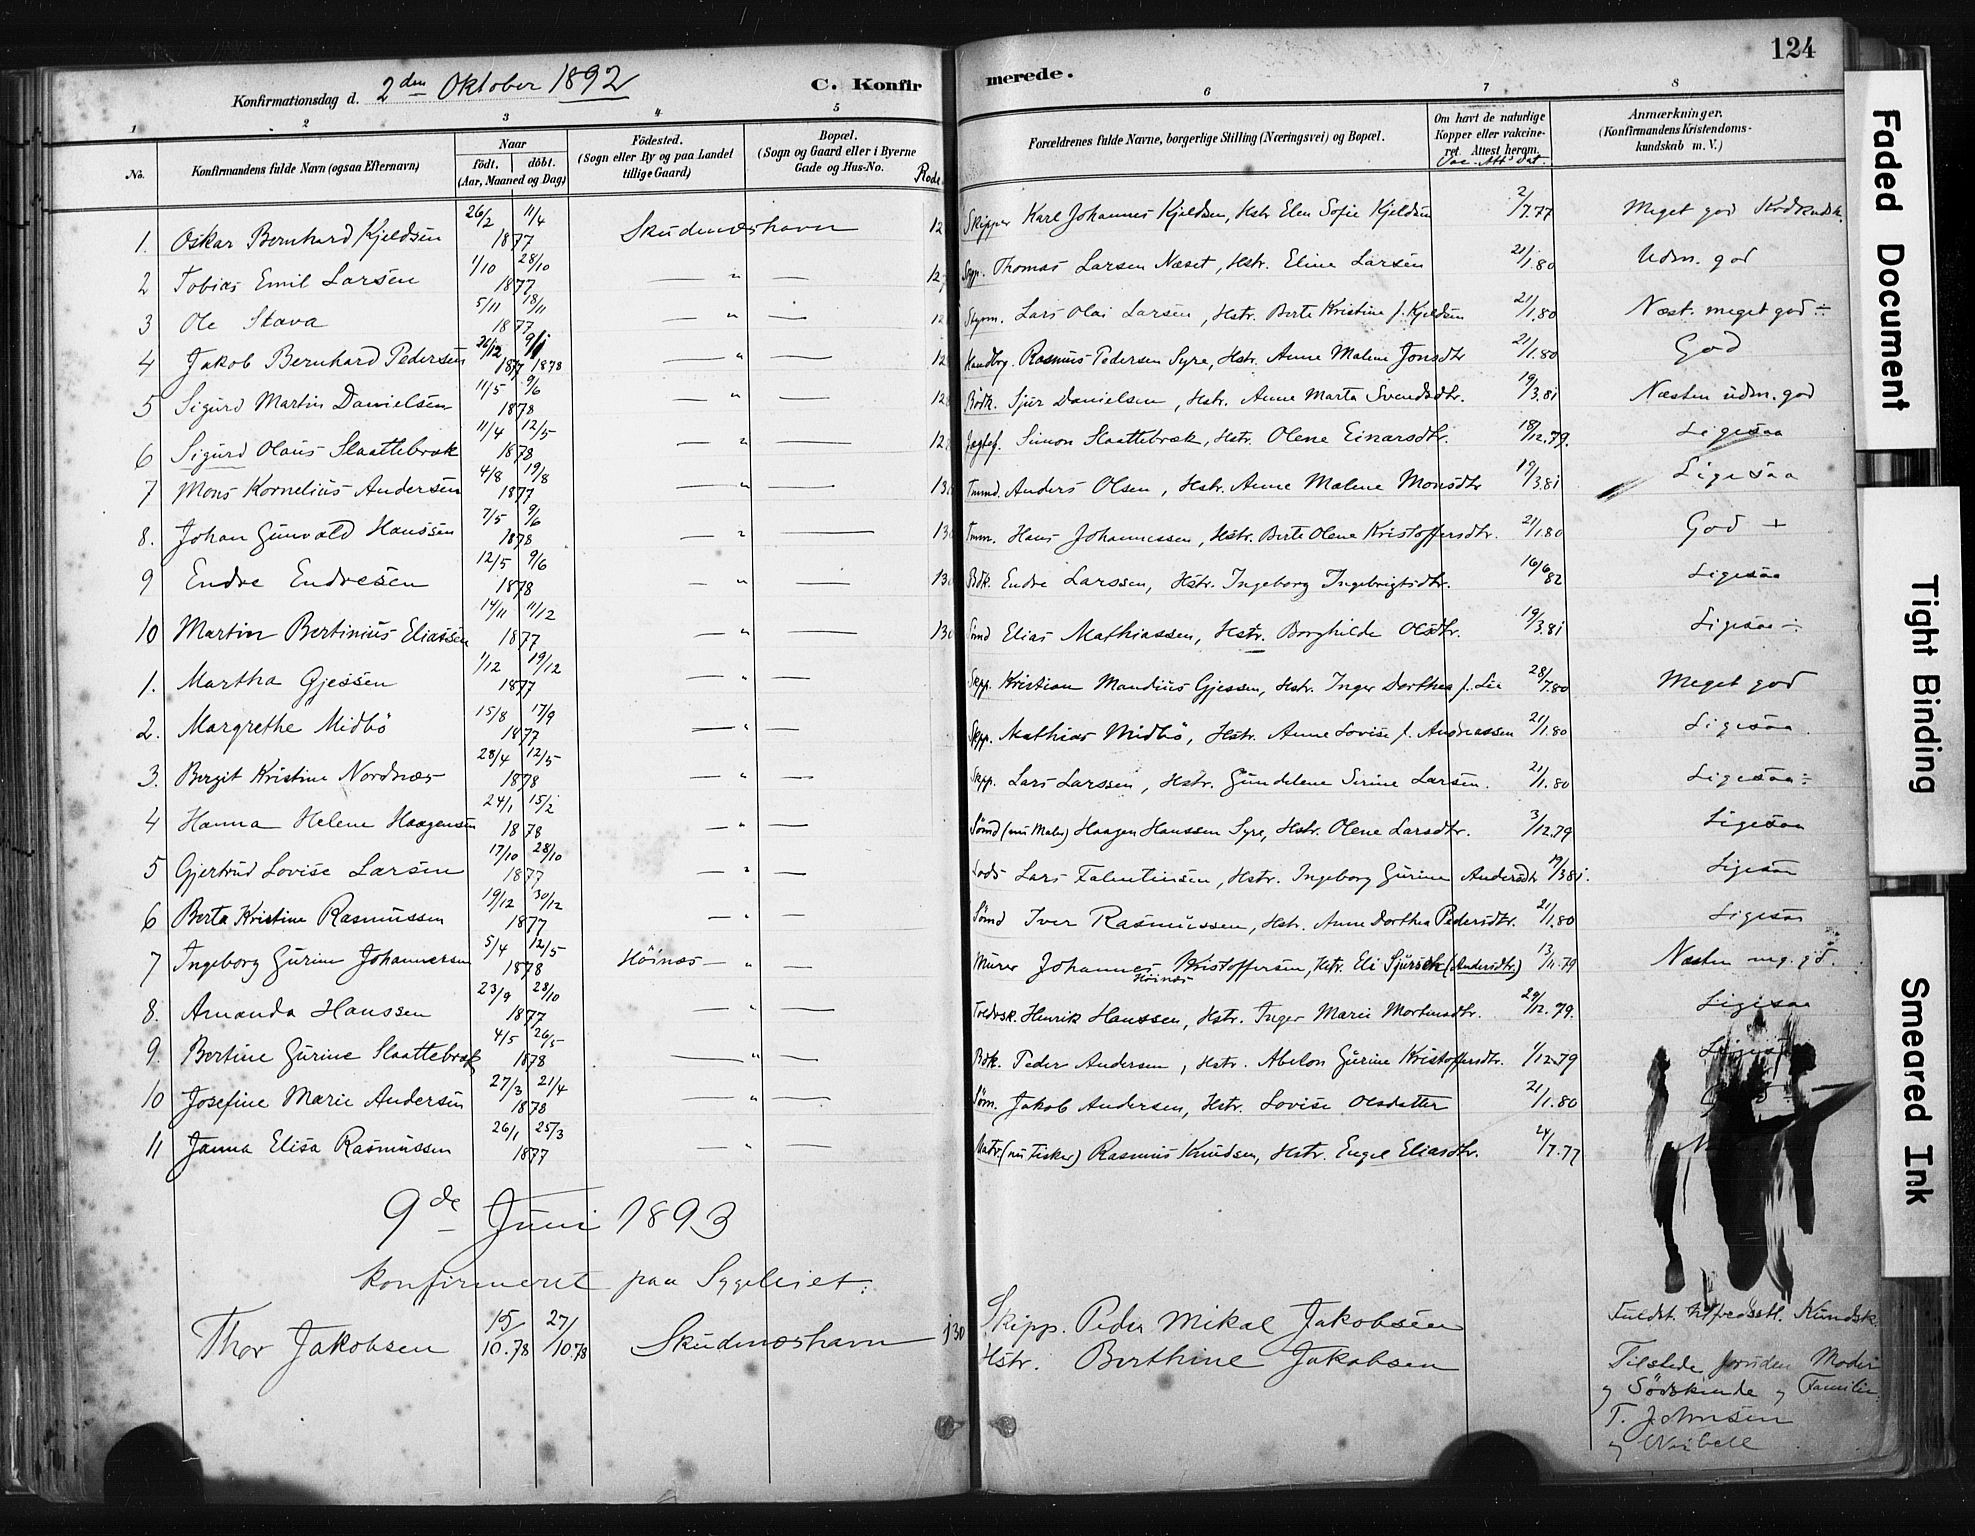 124
Konfirmationsdag d. 2den Oktober 1892 C. Konfirmerede.
1 2 3 4 5 6 7 8
No. Konfirmandens fulde Navn (ogsaa Efternavn) Naar födt. döbt. (Aar, Maaned og Dag) Födested. (Sogn eller By og paa Landet tillige Gaard.) Bopæl. (Sogn og Gaard eller i Byerne Gade og Hus-No. Rode. Forældrenes fulde Navne, borgerlige Stilling (Næringsvei) og Bopæl. Om havt de naturlige Kopper eller vakcineret. Attest herom. Vac. Att. Dat. Anmærkninger. (Konfirmandens Kristendomskundskab m. V.)
1. Oskar Bernhard Kjeldsen 26/2 11/4 1877 Skudesneshavn Skipper Karl Johannes Kjeldsen, Hstr. Elen Sofie Kjeldsen 2/7.77 Meget god
2 Tobias Emil Larsen 1/10 28/10 1877 — " — Thomas Larsen Næset, Hstr. Eline Larsen 21/1.80 Udm. god
3 Ole Stava 5/11 18/11 1877 — " — Styrm. Lars Olai Larsen, Hstr. Berte Kristine f. Kjeldsen 21/1.80 Næst. meget god ÷
4 Jakob Bernhard Pedersen 26/12 1877 1878 — " — Rasmus Pedersen Syre, Hstr. Anne Malene Jonsdtr 21/1.80 God
5 Sigurd Martin Danielsen 11/5 9/6 1878 — " — Bödk. Sjur Danielsen, Hstr. Anne Marta Svendsdtr. 19/3.81 Næsten udm. god
6 Sigurd Olaus Slaattebræk 11/4 12/5 1878 — " — Simon Slaattebræk, Hstr. Olene Einarsdtr. 18/12.79. Ligesaa
7 Mons Kornelius Andersen 4/8 19/8 1877 — " — Tmmd. Anders Olsen, Hstr. Anne Malene Monsdtr 19/3.81 Ligesaa
8. Johan Gunvald Hanssen 7/5 9/6 1878 — " — Tmm. Hans Johannessen, Hstr. Berte Olene Kristoffersdtr. 21/1.80 God +
9 Endre Endresen 12/5 9/6 1878 — " — Bdk. Endre Larssen, Hstr. Ingeborg Ingebrigtsdtr. 16/6 82 Ligesaa
10 Martin Bertinius Eliassen 14/11 11/12 1877 — " — 130 Smd Elias Mathiassen, Hstr. Borghilde Olsdtr. 19/3.81 Ligesaa ÷
1. Martha Gjessen 1/12 19/12 1877 — " — Skpp. Kristian Mandius Gjessen, Hstr. Inger Dorthea f. Lie 28/7.80 Meget god
2. Margrethe Midbö 15/8 17/9 1877 — " — Skpp. Mathias Midbö, Hstr. Anne Lovise f. Andreassen 21/1.80 Ligesaa
3. Bergit Kristine Nordnæs 28/4 12/5 1878 — " — Skpp. Lars Larssen, Hstr. Gundelene Serine Larsen. 21/1.80 Ligesaa ÷
4 Hanna Helene Haagensen 24/1 15/2 1878 — " — Sömd (nu Maler) Haagen Hanssen Syre, Hstr. Olene Larsdtr. 3/12.79 Ligesaa
5 Gjertrud Lovise Larsen 17/10 28/10 1877 — " — Lods Lars Falentinsen, Hstr. Ingeborg Gurine Andersdtr 19/3 81. Ligesaa
6 Berta Kristine Rasmussen 19/12 30/12 1877 — " — Sömd Iver Rasmussen, Hstr. Anne Dorthea Pedersdtr. 21/1.80 Ligesaa
7 Ingeborg Gurine Johannessen 5/4 12/5 1878 Höines — " — Murer Johannes Kristoffersen, Hstr. Eli (Andersdtr.) 13/11.79 Næsten mg. god.
Höines
8. Amanda Hanssen 23/9 28/10 1877 — " — Henrik Hanssen, Hstr. Inger Marie Mortensdtr. 29/12.79. Ligesaa
9. Bertine Gurine Slaattebræk 4/5 26/5 1878 — " — Bdk. Peder Andersen, Hstr. Abelon Gurine Kristoffersdtr. 1/12.79
10 Josefine Marie Andersen 27/3 21/4 1878 — " — Söm. Jakob Andersen, Hstr. Lovise Olsdatter 21/1.80
11 Janna Elisa Rasmussen 26/1 25/3 1877 — " — Matr. (nu Fisker) Rasmus Knudsen, Hstr. Engel Eliasdtr. 24/7.77
9de Juni 1893
Konfirmeret paa Sygeleiet:
Thor Jakobsen 15/10.78 27/10.78 Skudesneshavn 130 Skipp. Peder Mikal Jakobsen
Hstr. Berthine Jakobsen
Fuldt. tilfredsstl. Kundsk.
Tilstede foruden Moder
og Södskende og Familie
T. Johnsen
Faded Document
Tight Binding
Smeared Ink